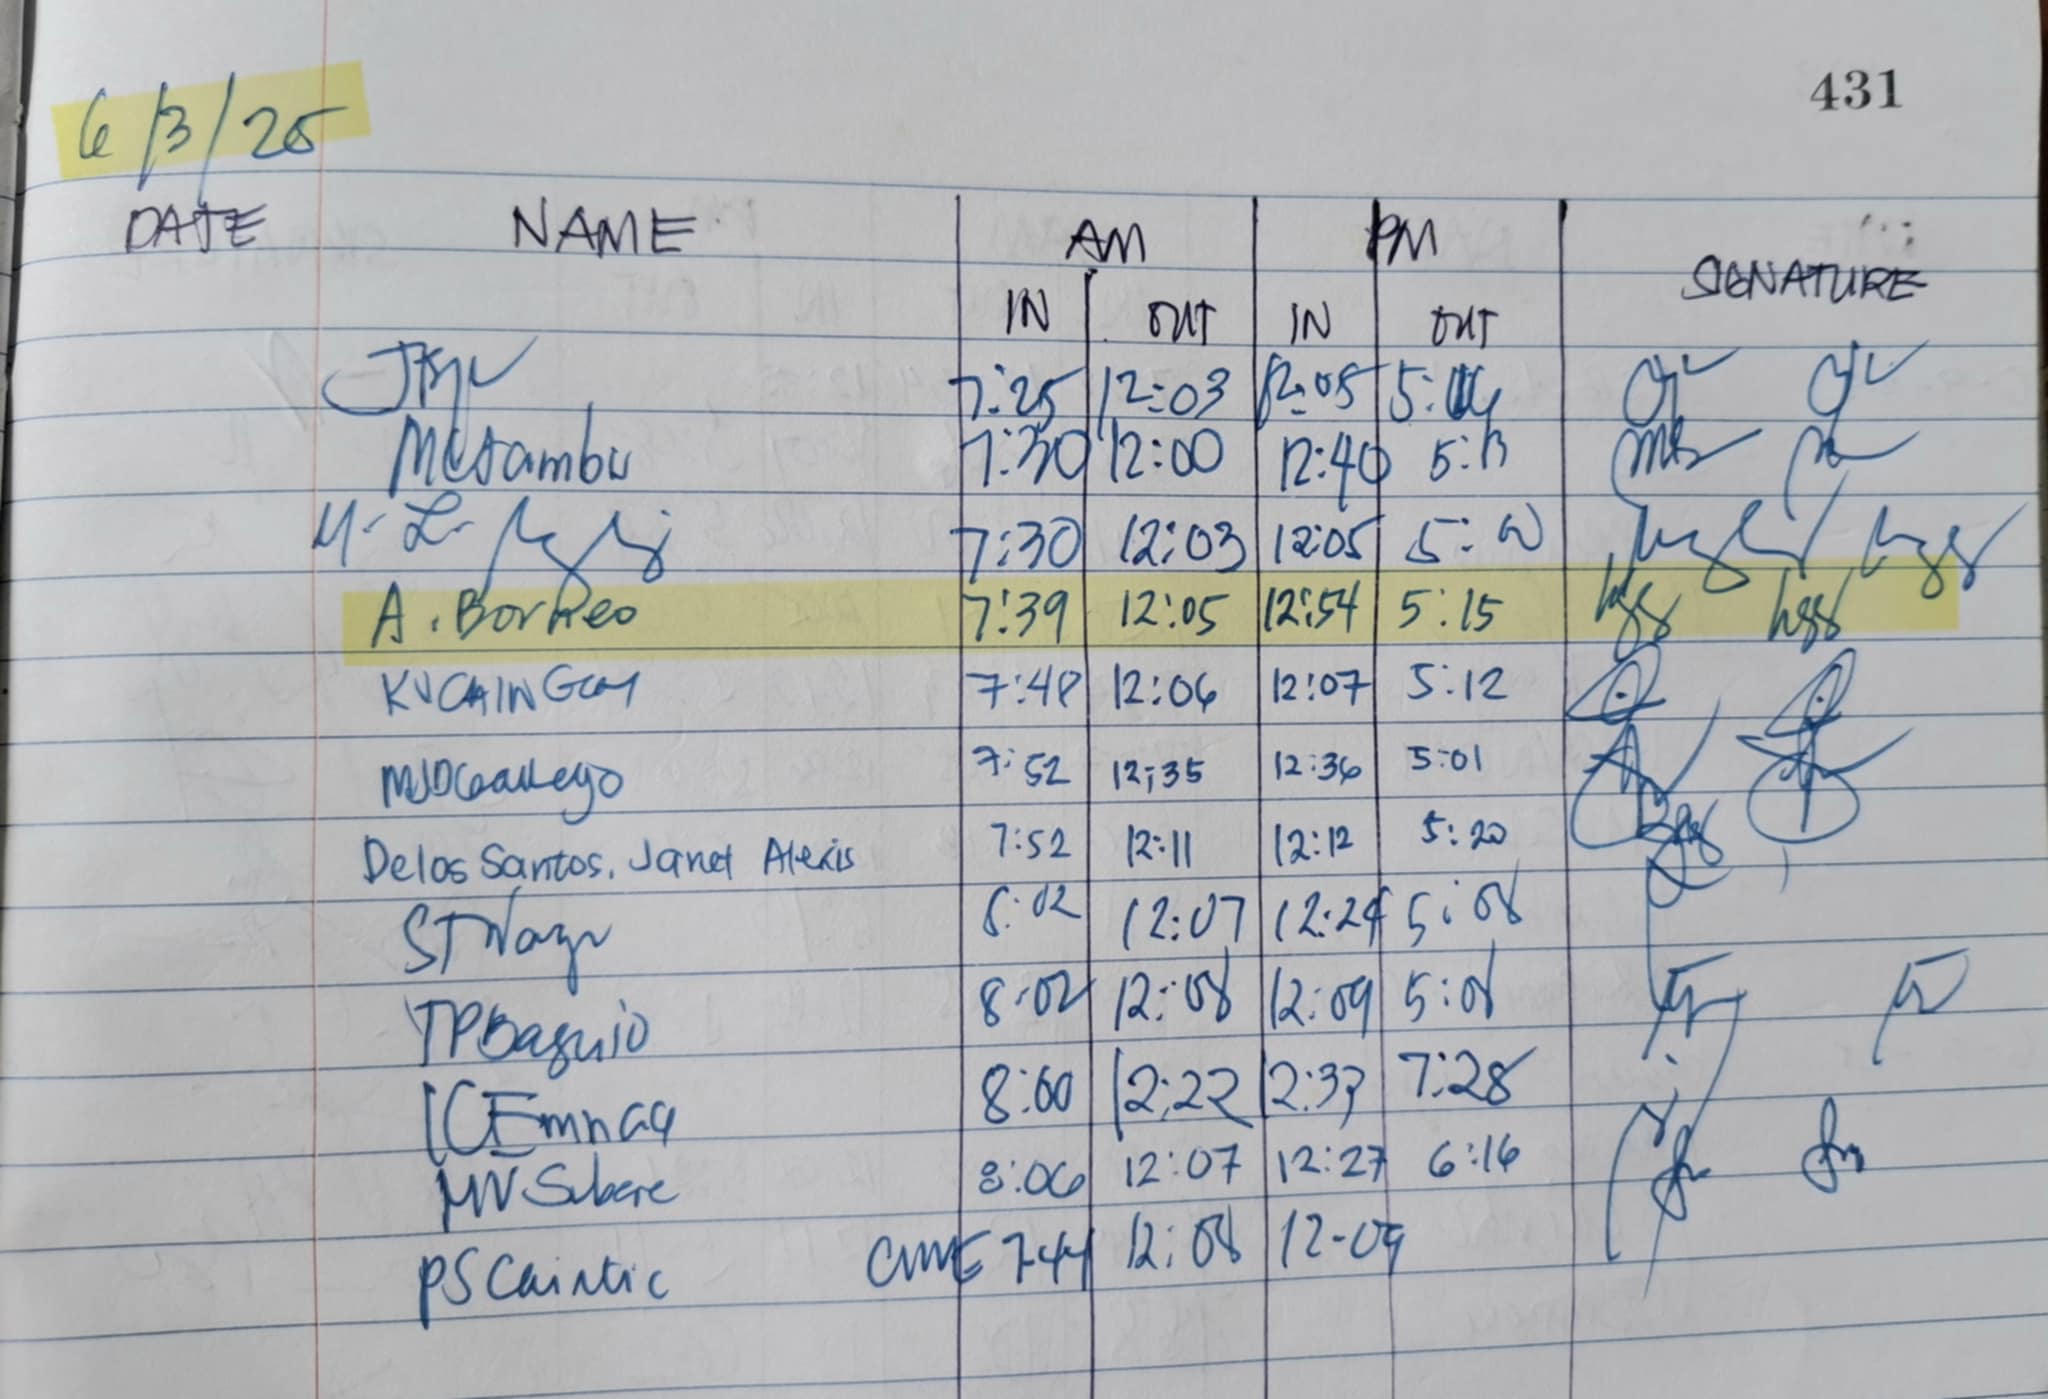 431
6/3/25
DATE NAME AM PM SIGNATURE
IN OUT IN OUT
7:25 12:03 12:05
7:30 12:00 12:40 5:13
7:30 12:03 12:05
A. Borreo 7:39 12:05 12:54 5:15
KVCAINGCOY 7:48 12:06 12:07 5:12
MJDGallego 7:52 12:35 12:36 5:01
Delos Santos, Janet Alexis 7:52 12:11 12:12 5:20
8:02 12:07 12:24 5:08
TPBaguio 8:02 12:08 12:09 5:08
ICEmnaa 8:00 12:22 12:37 7:28
MVSubere 8:06 12:07 12:27 6:16
PSCaintic CAME 7:44 12:08 12-09